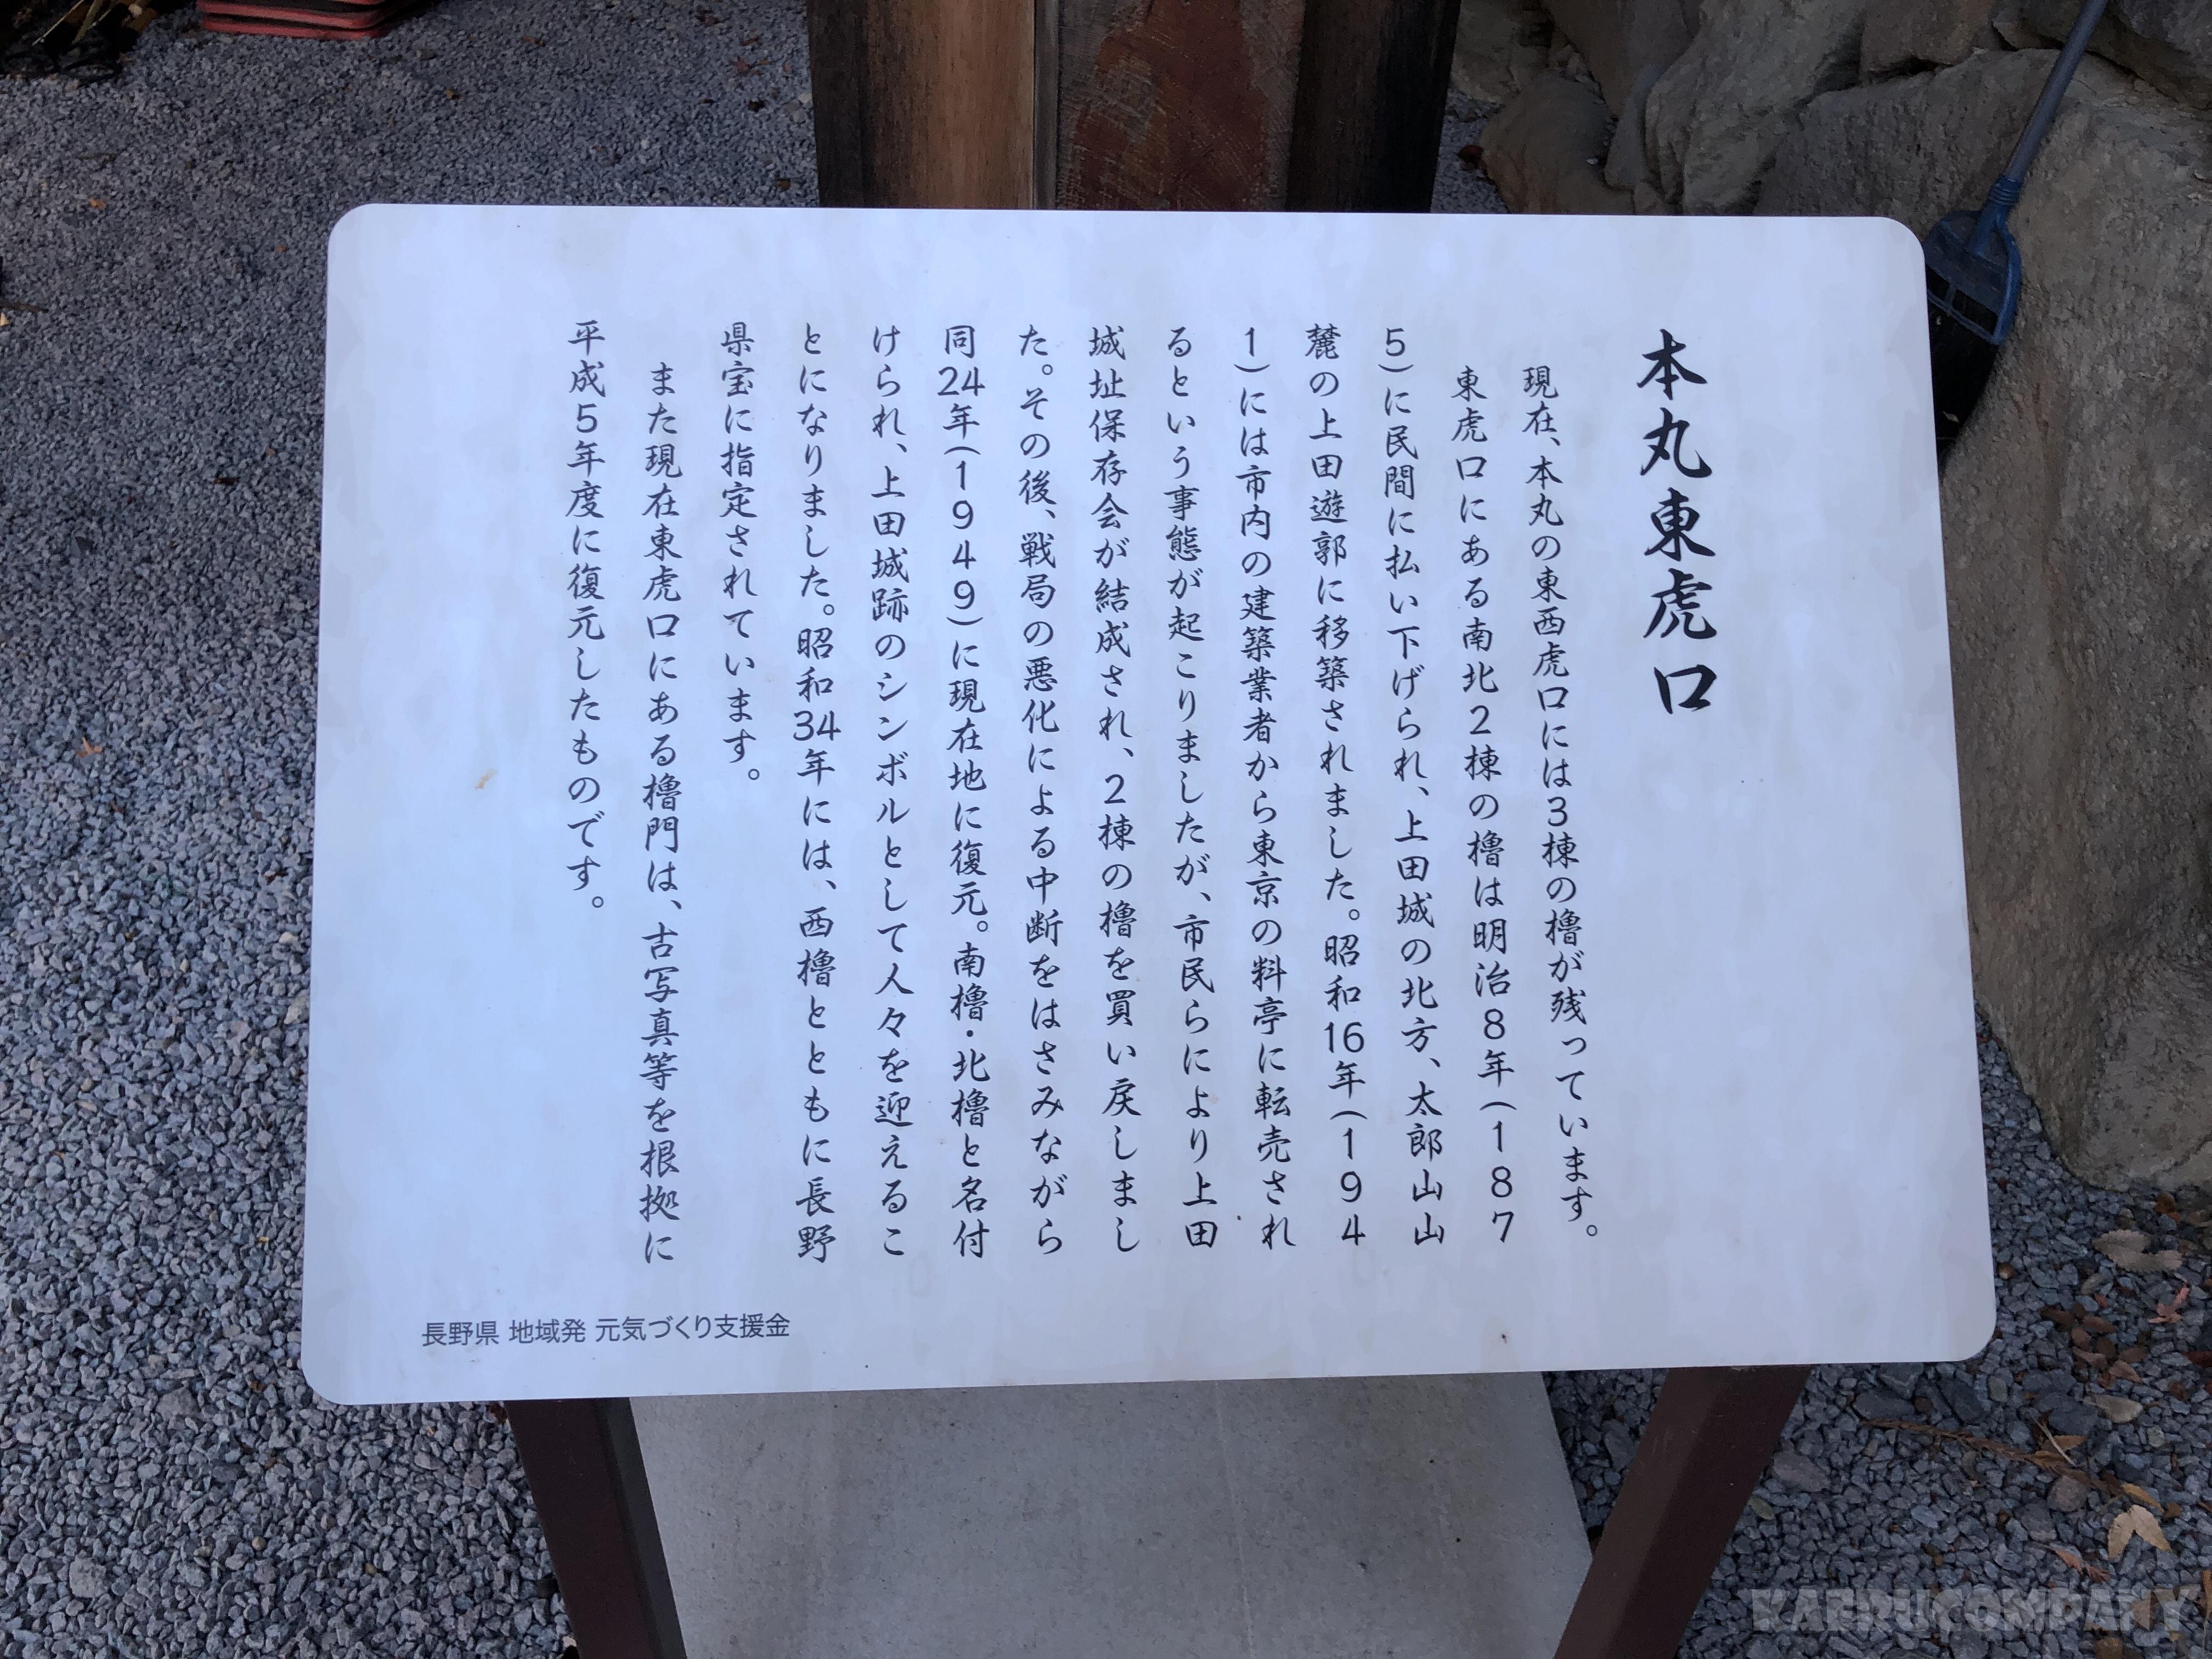 本丸東虎口
現在、本丸の東西虎口には3棟の櫓が残っています。
東虎口にある南北2棟の櫓は明治8年(187
5)に民間に払い下げられ、上田城の北方、太郎山山
麓の上田遊郭に移築されました。昭和16年(194
1)には市内の建築業者から東京の料亭に転売され
るという事態が起こりましたが、市民らにより上田
城址保存会が結成され、2棟の櫓を買い戻しまし
た。その後、戦局の悪化による中断をはさみながら
同24年(1949)に現在地に復元。南櫓・北櫓と名付
けられ、上田城跡のシンボルとして人々を迎えるこ
とになりました。昭和34年には、西櫓とともに長野
県宝に指定されています。
また現在東虎口にある櫓門は、古写真等を根拠に
平成5年度に復元したものです。
長野県 地域発 元気づくり支援金
KAERUCOMPANY